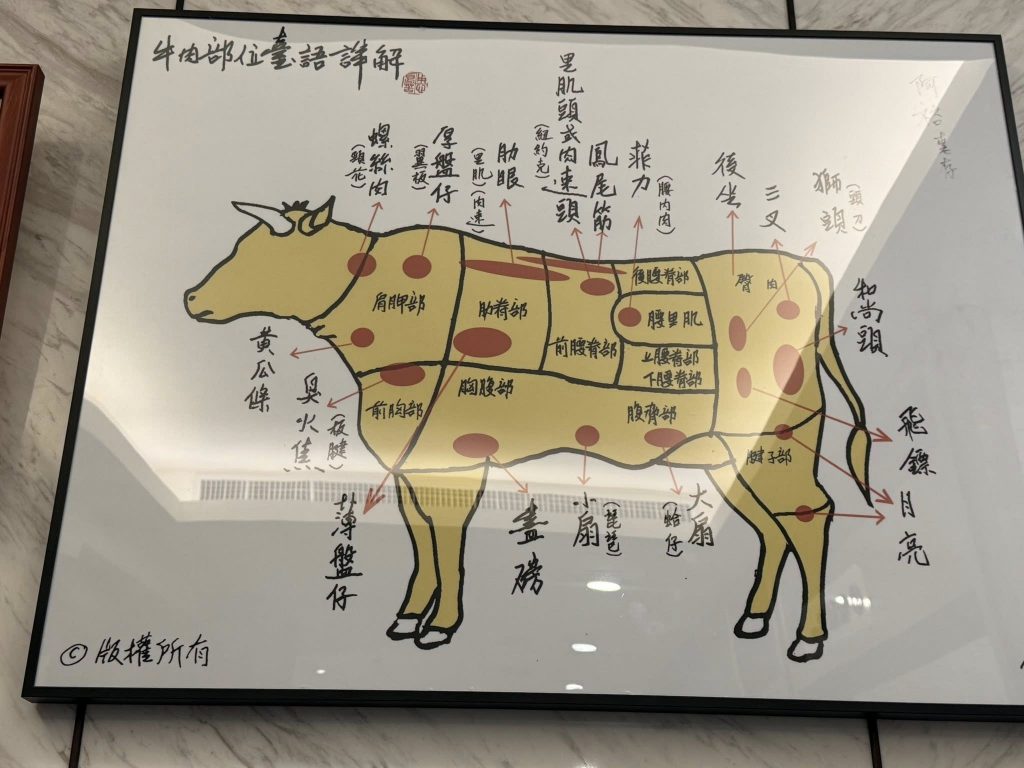 牛肉部位臺語詳解
螺絲肉
(頸花)
厚盤仔
(翼板)
肋眼
(里肌)(肉速)
里肌頭或肉速頭
(紐約克)
鳳尾筋
菲力
(腰內肉)
後坐
三叉
獅頭
(頭刀)
和尚頭
肩胛部
肋脊部
前腰脊部
後腰脊部
腰里肌
上腰脊部
下腰脊部
臀肉
前胸部
胸腹部
腹脅部
腱子部
黃瓜條
臭火焦
(板腱)
薄盤仔
蓋磅
小扇
(琵琶)
大扇
(蛤仔)
飛鏢
月亮
© 版權所有